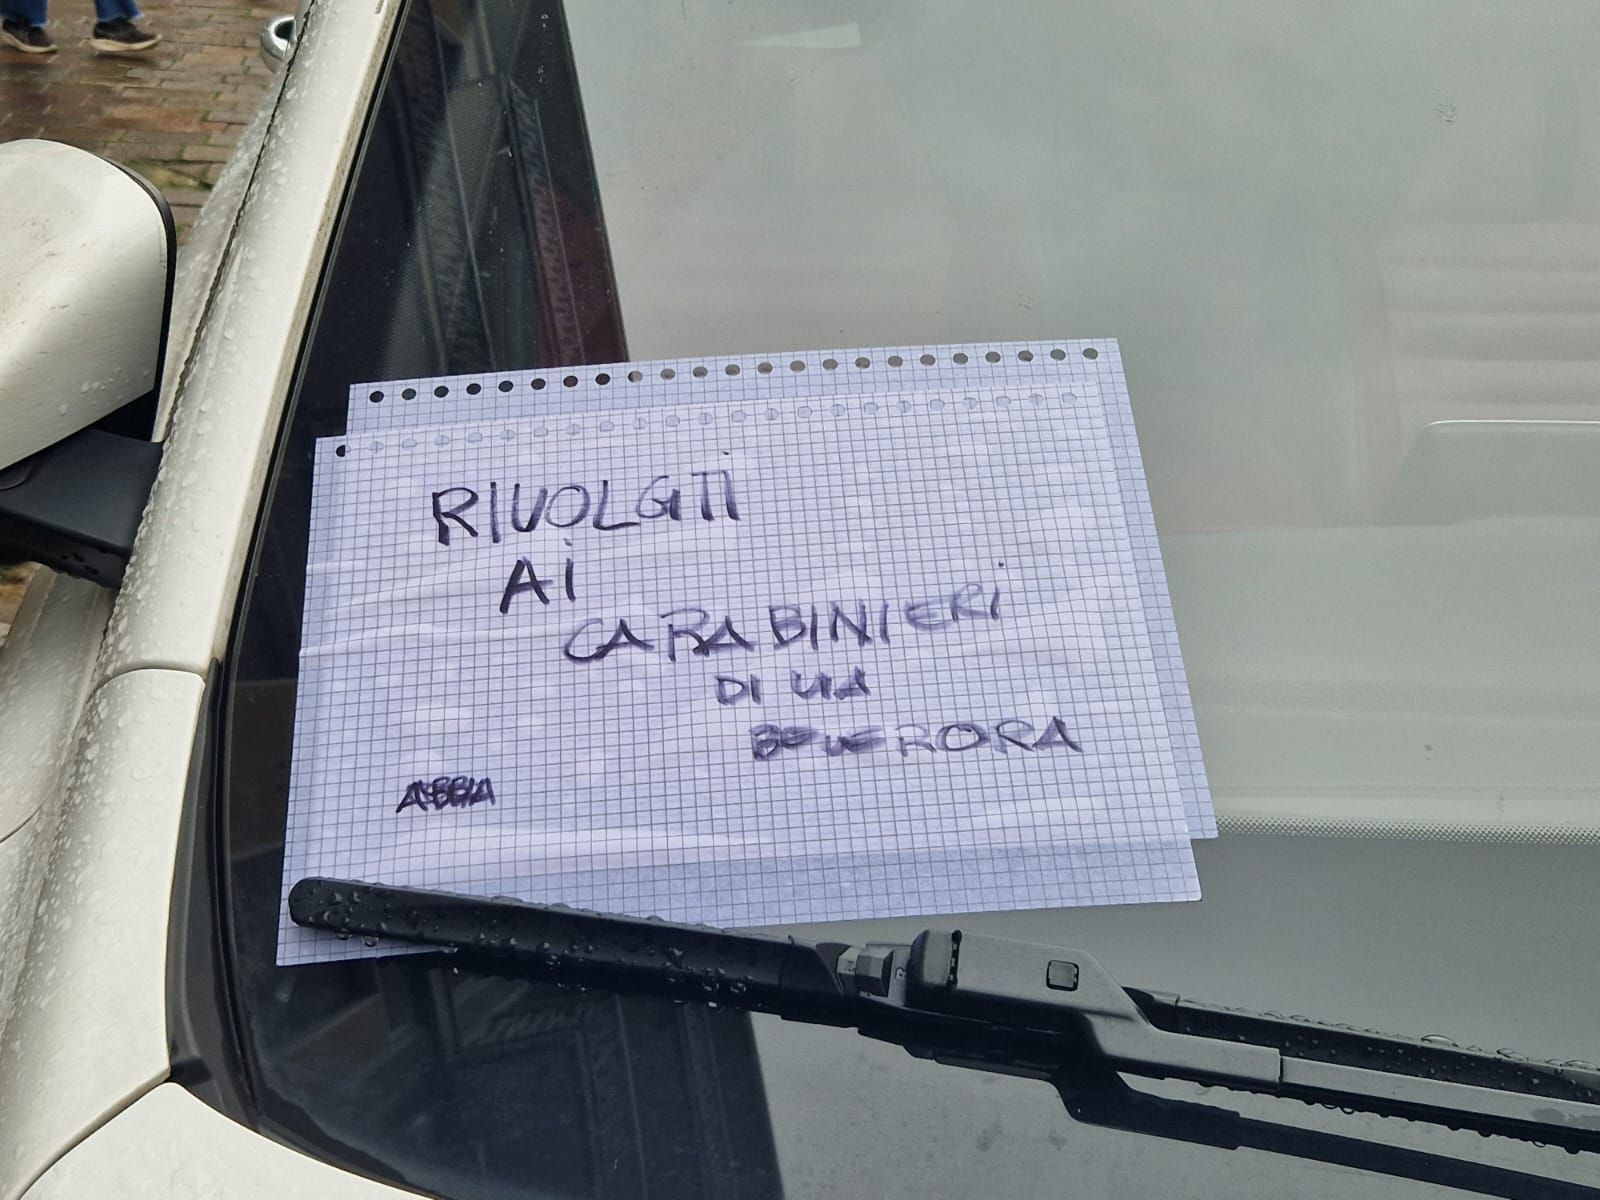 RIVOLGITI
Ai
CARABINIERi
DI VIA
BEVERORA
ABBIA